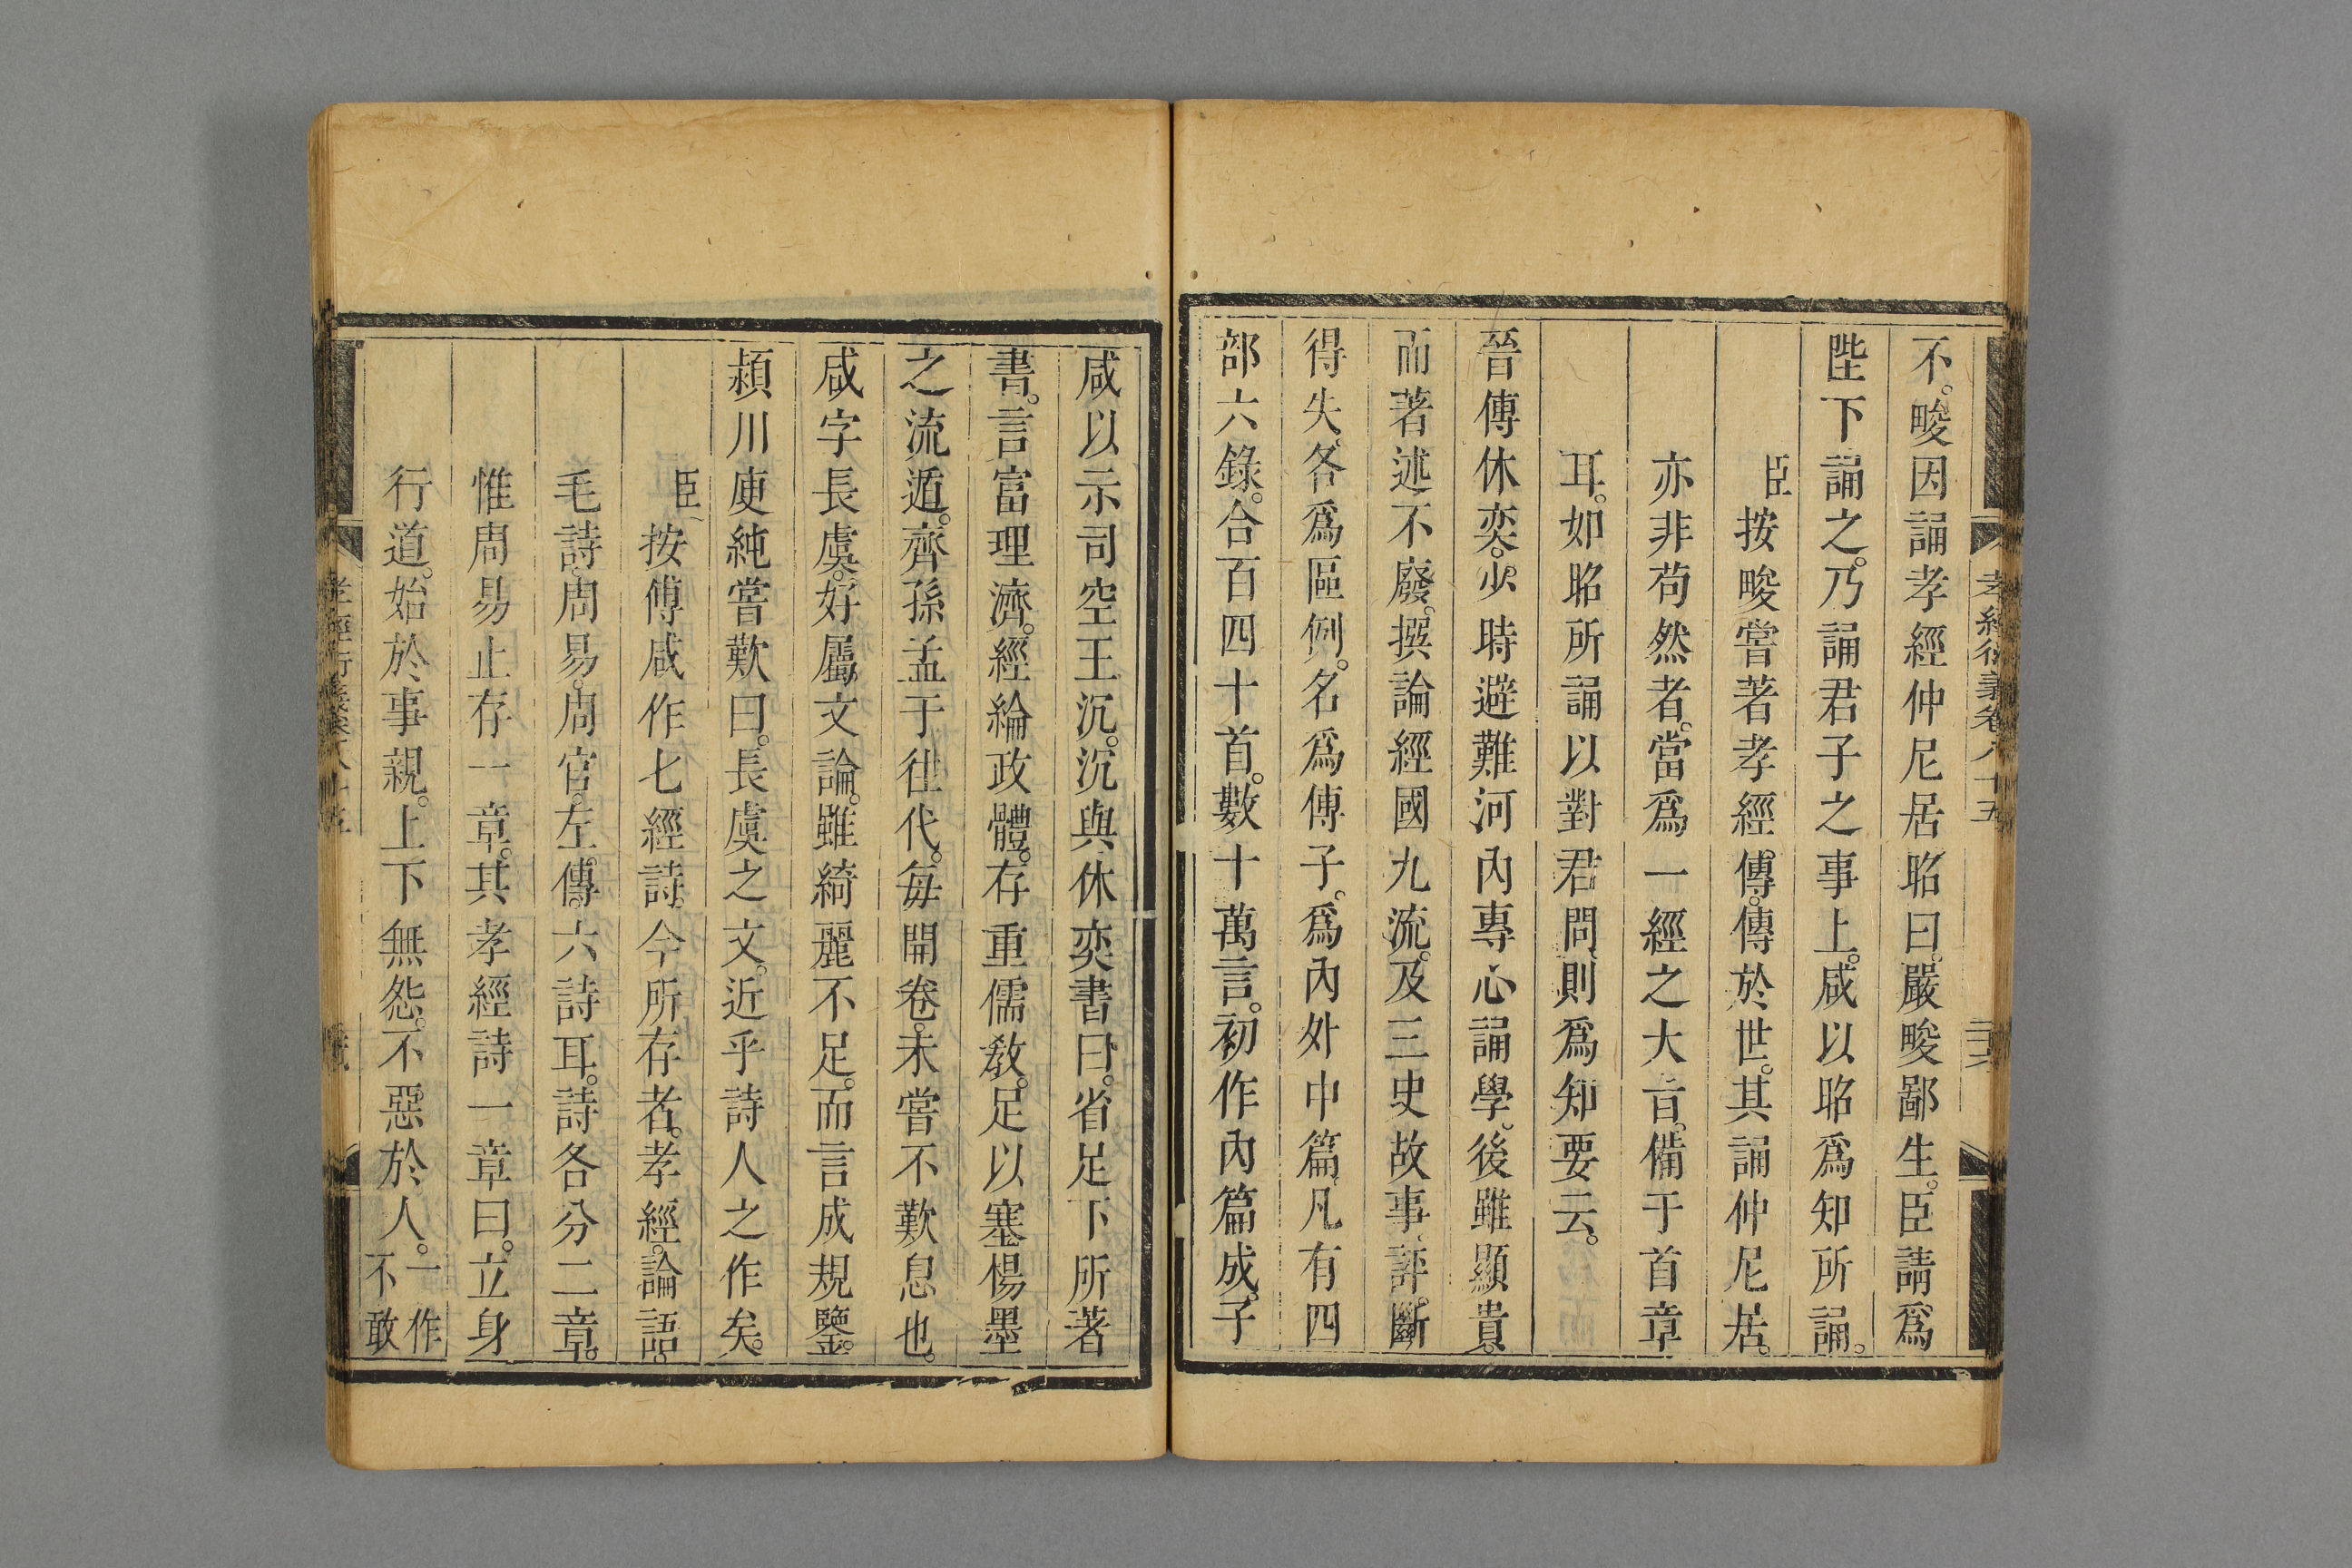 不。畯因誦孝經仲尼居昭曰。嚴畯鄙生。臣請爲
陛下誦之。乃誦君子之事上。咸以昭爲知所誦。
臣按畯嘗著孝經。傳。傳於世。其誦仲尼居。
亦非苟然者。當爲一經之大㫖。備于首章
耳。如昭所誦以對君問、則爲知要云。
晉傅休奕。少時避難河內專心誦學。後雖顯貴。
而著述不廢。撰論經國九流。及三史故事、評斷
得失、各爲區例。名爲傅子。爲內外中篇、凡有四
部六錄。合百四十首。數十萬言。初作內篇成。子
孝經衍義卷八十五
二十六
咸以示司空王沉。沉與休奕書曰。省足下所著
書。言富理濟。經綸政體。存重儒教。足以塞楊墨
之流遁。齊孫孟于往代。每開卷。未嘗不歎息也。
咸字長虞。好屬文論。雖綺麗不足。而言成規鑒。
潁川庾純嘗歎曰。長虞之文。近乎詩人之作矣。
臣按傅咸作七經詩。今所存者。孝經。論語
毛詩。周易。周官。左。傳。六詩耳。詩各分二章。
惟周易止存一章。其孝經詩一章曰。立身
行道。始於事親。上下無怨。不惡於人。一作不敢